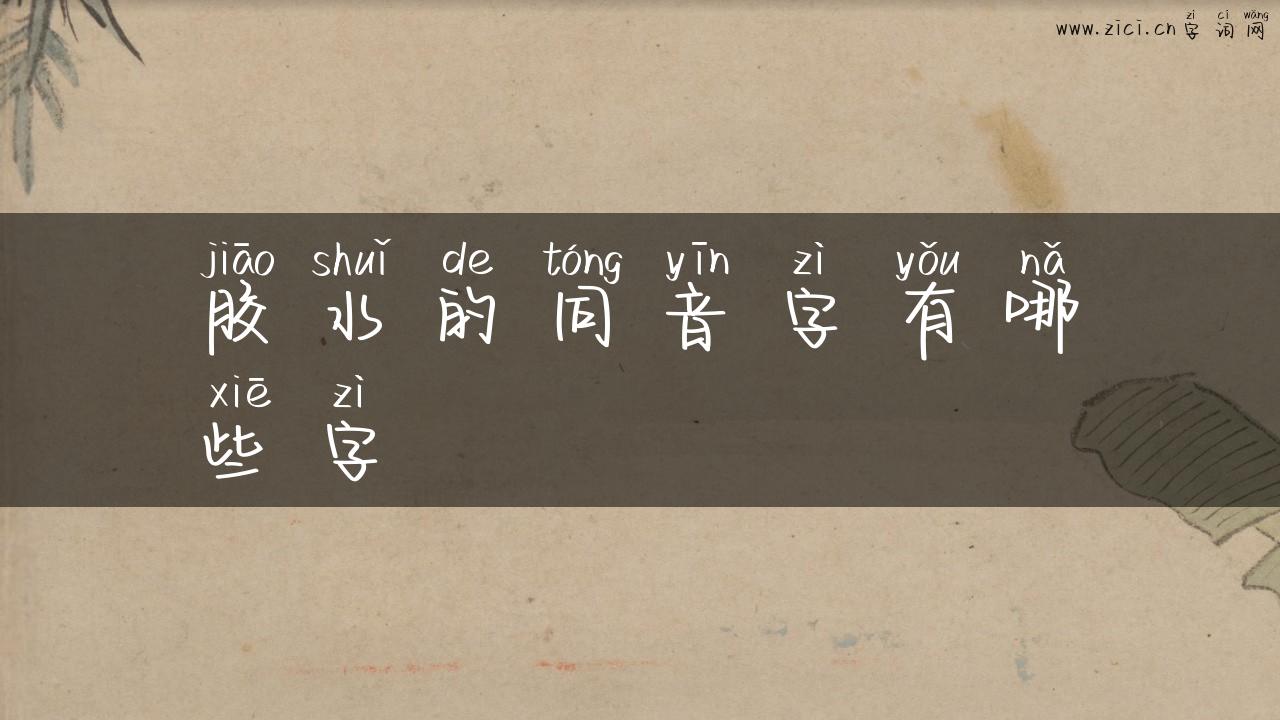 zì cí wǎng
www.zici.cn 字词网
jiāo shuǐ de tóng yīn zì yǒu nǎ
胶水的同音字有哪
xiē zì
些字